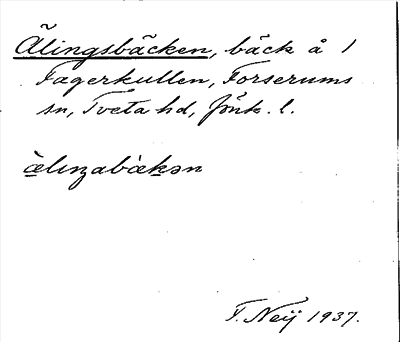 Älingsbäcken, bäck å 1
Fagerkullen, Forserums
sn, Tveta hd, Jönk. l.
æ̀lɩŋabæ̀kən
T. Neij 1937.